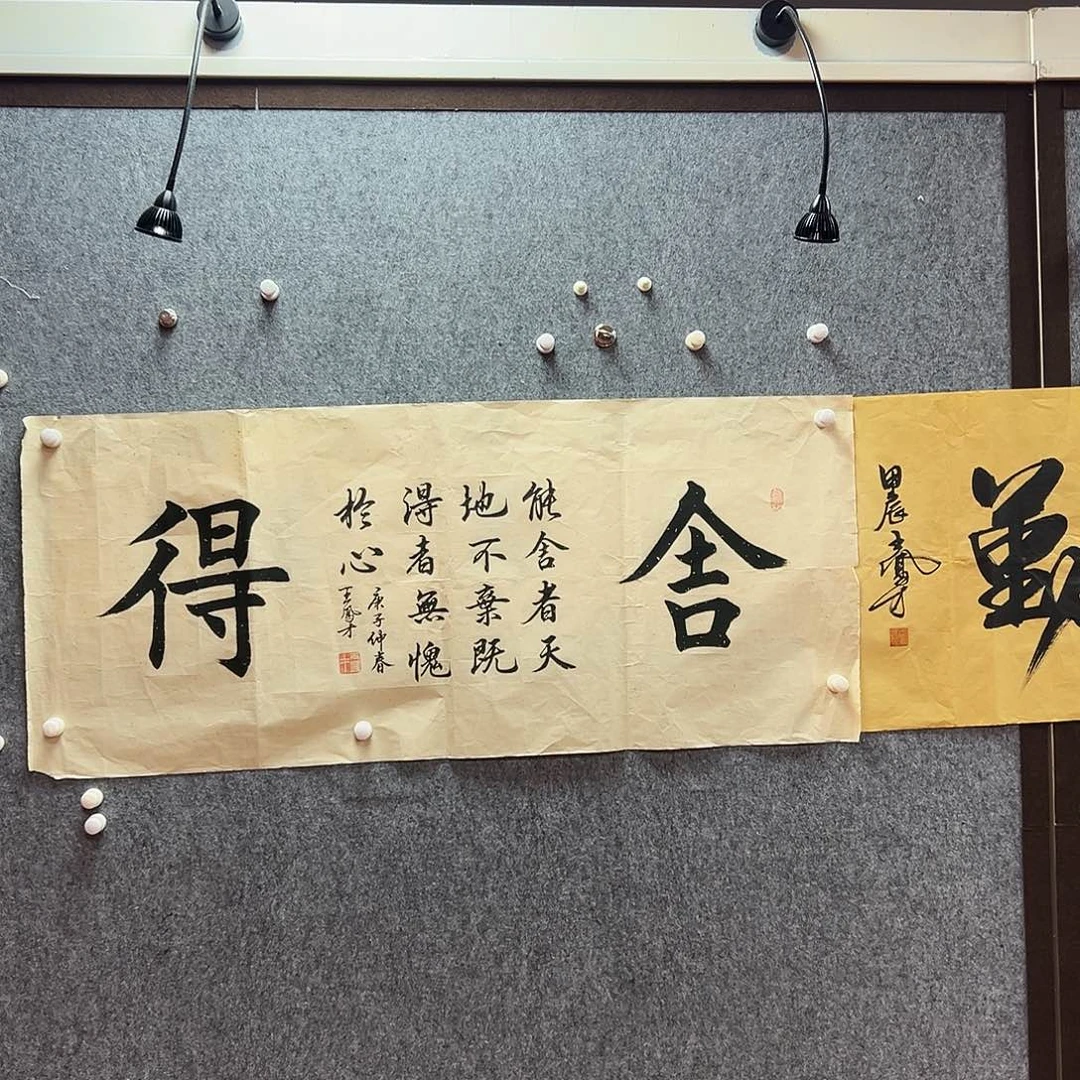 甲辰王鳳才
舍
能舍者天
地不棄既
得者無愧
於心
庚子仲春
王鳳才
得